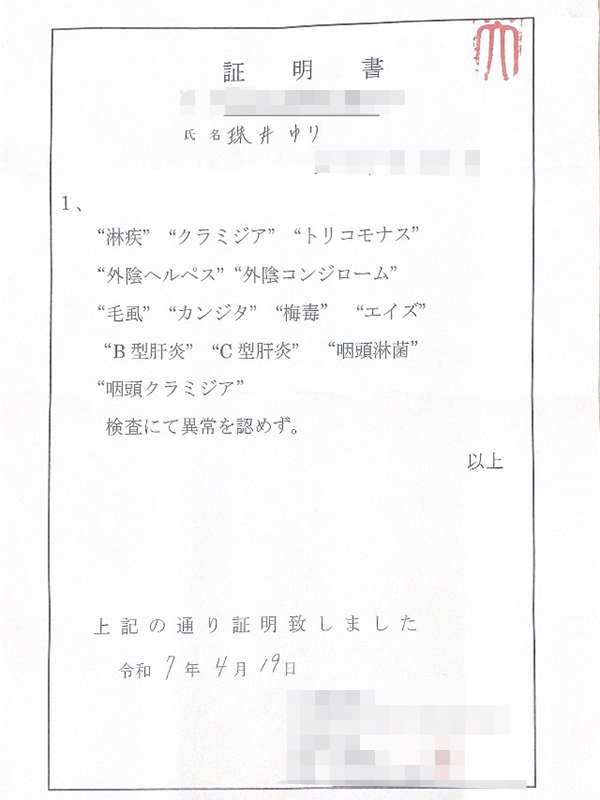 証明書
氏名 珠井ゆり
1、
“淋疾” “クラミジア” “トリコモナス”
“外陰ヘルペス” “外陰コンジローム”
“毛虱” “カンジタ” “梅毒” “エイズ”
“B型肝炎” “C型肝炎” “咽頭淋菌”
“咽頭クラミジア”
検査にて異常を認めず。
以上
上記の通り証明致しました
令和7年4月19日